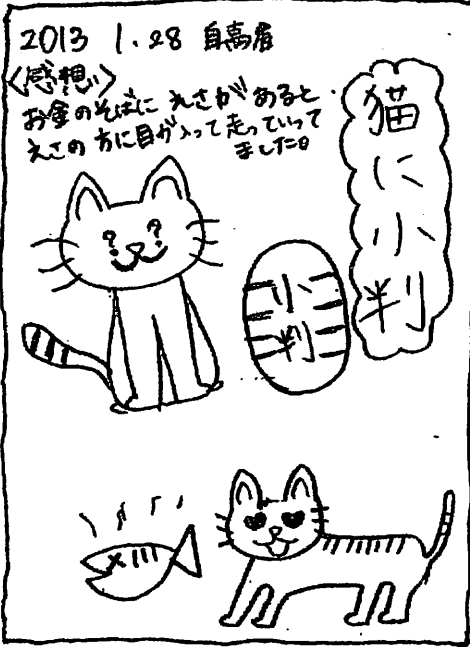 2013 1.28
〈感想〉
お金のそばに えさが あると
えさの 方に目が入って 走っていって
ました。
猫に小判
小判